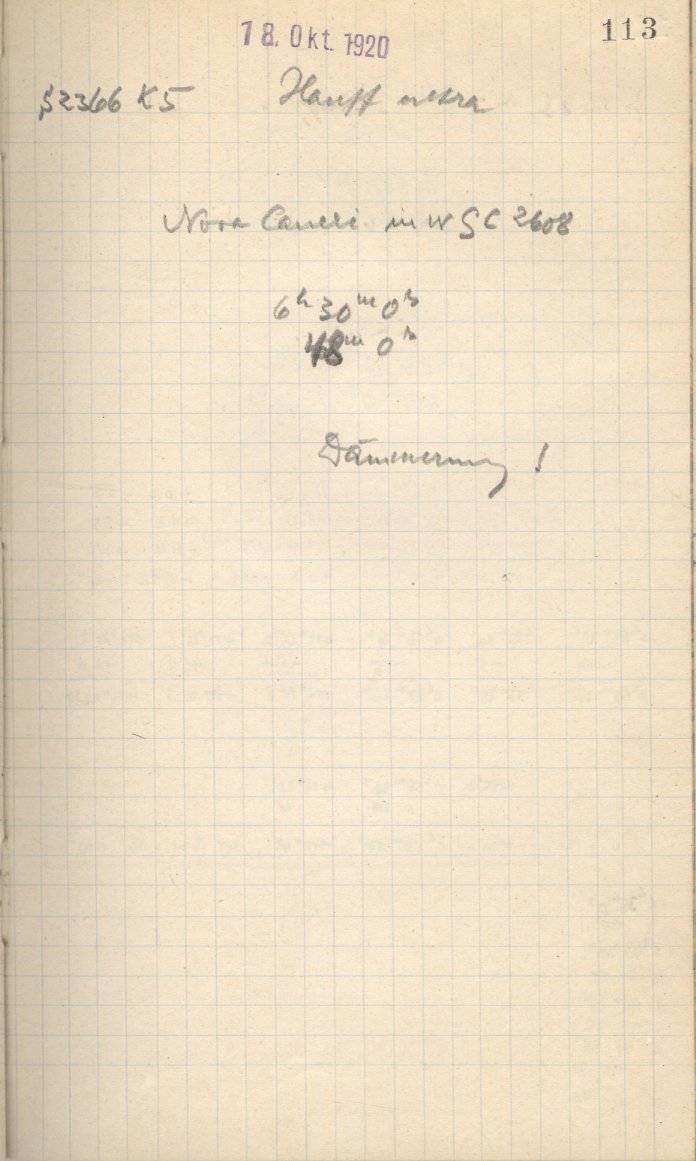 113
18. Okt. 1920
S2366 K5 Hauff ultra
Nova Cancri in W GC 2608
6h 30m 0s
48m 0s
Dämmerung !